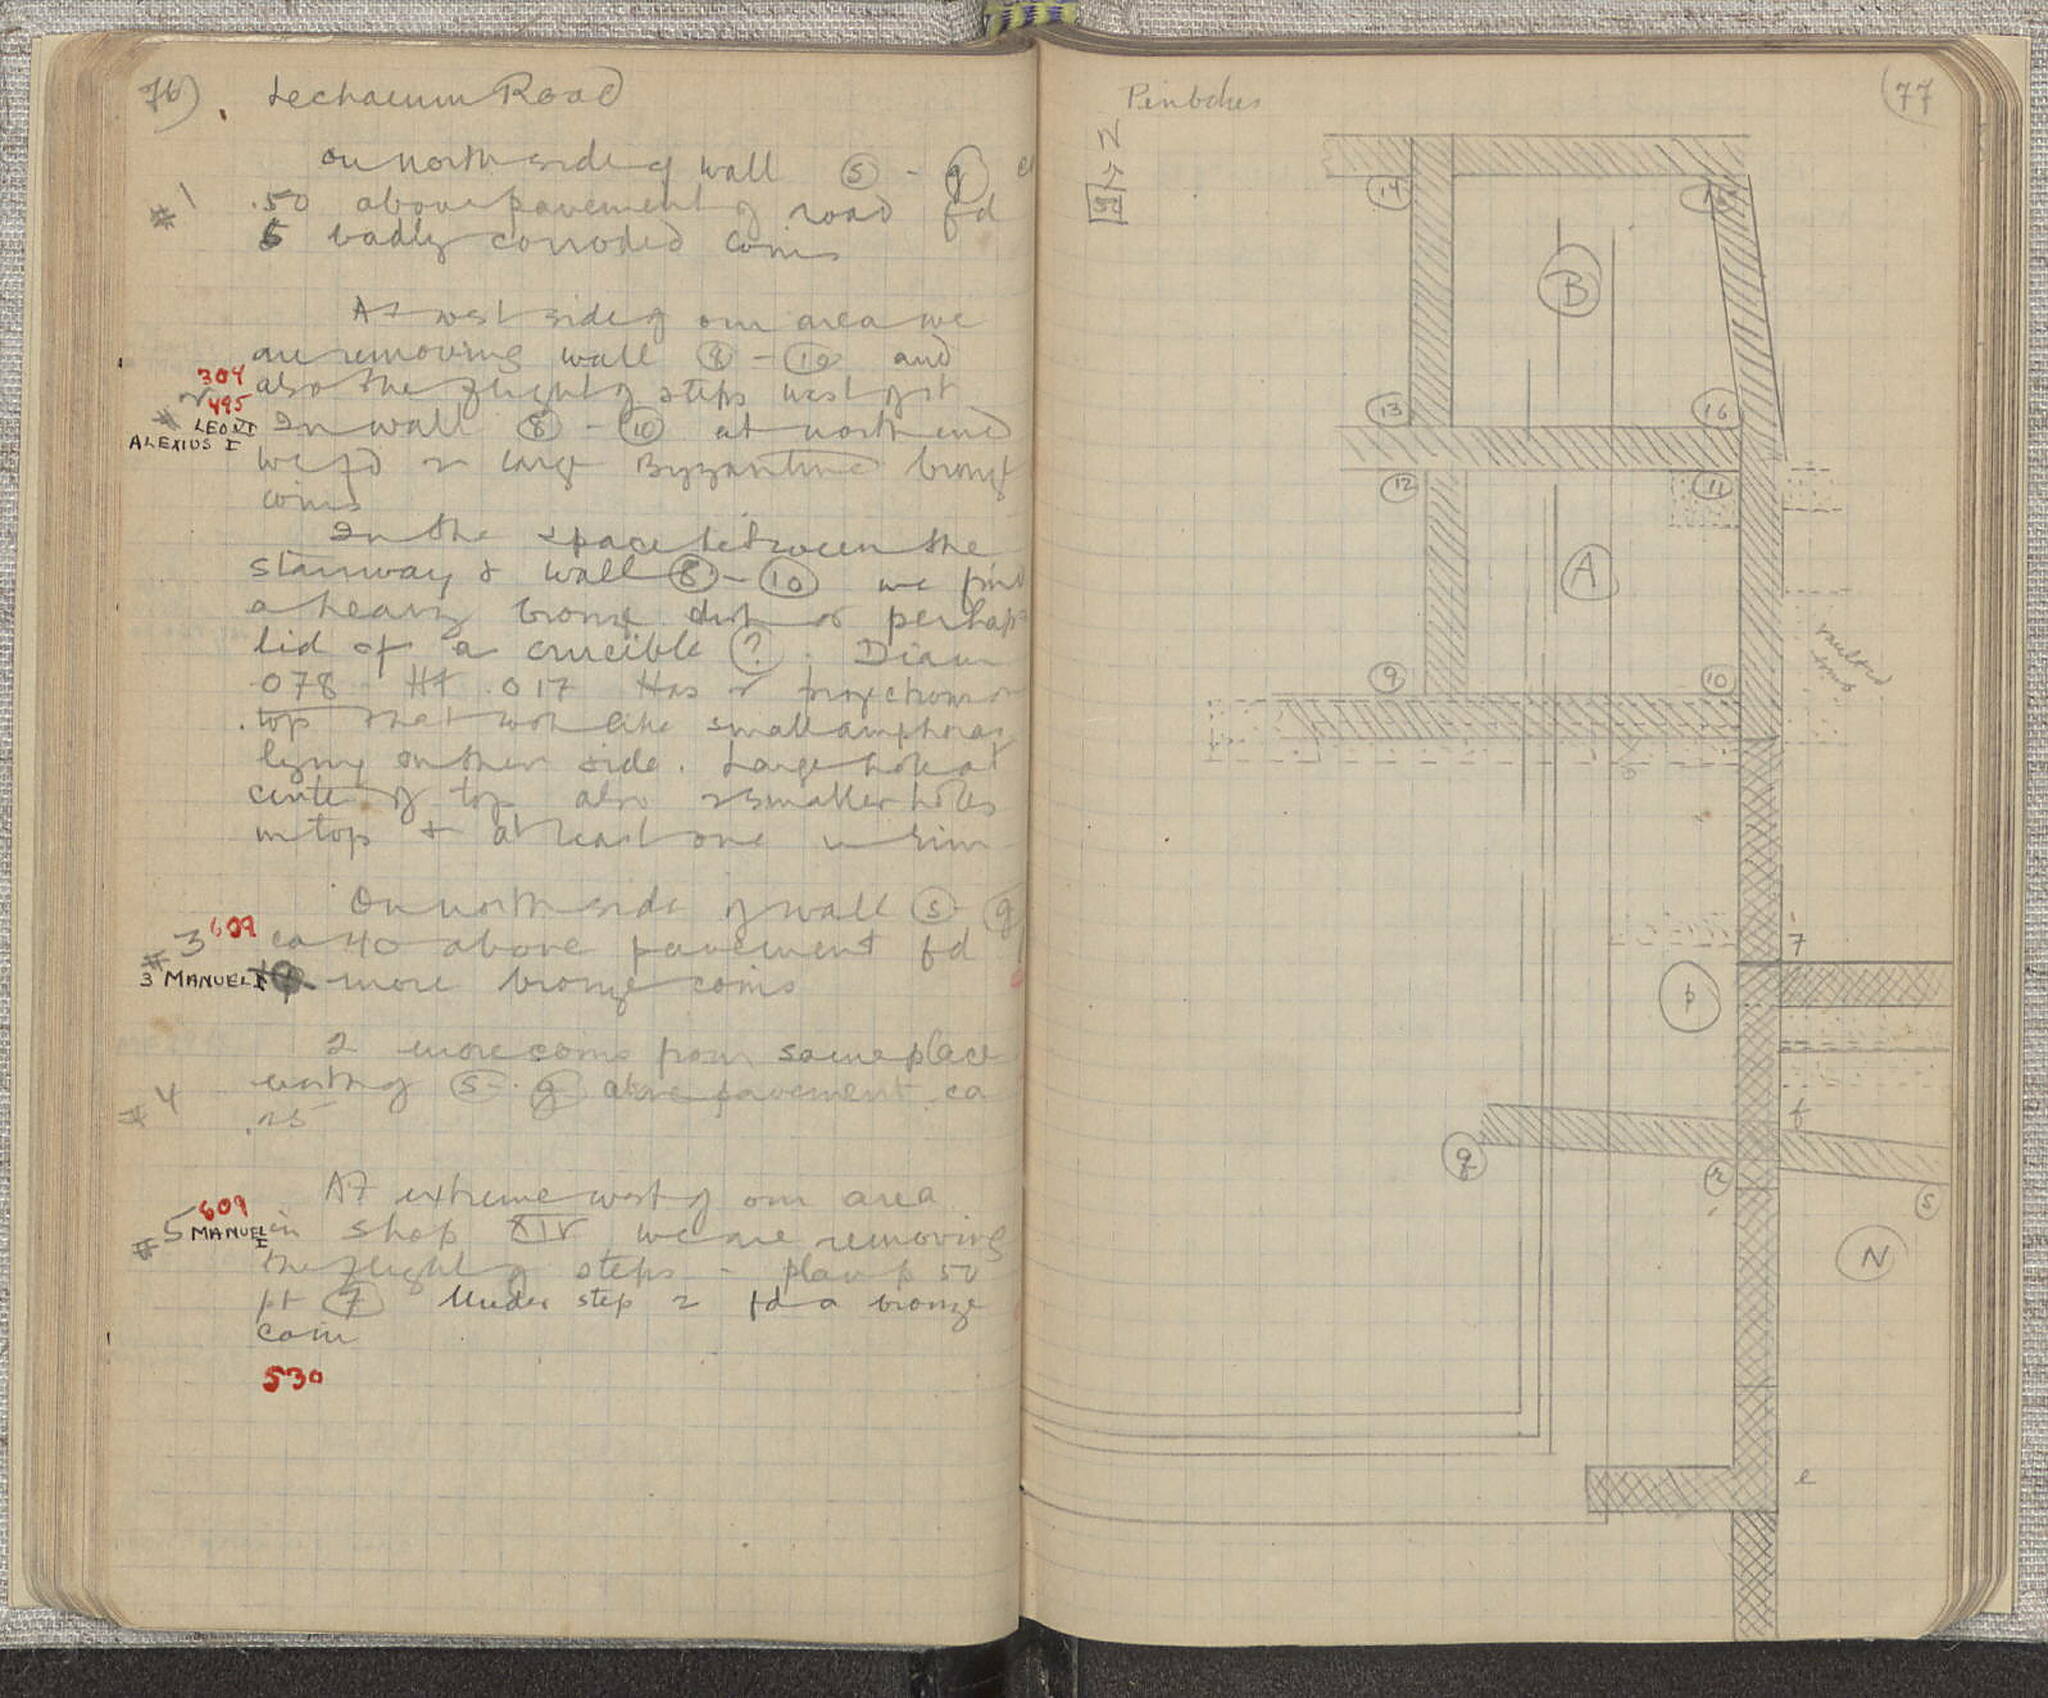 76)
Lechaeum Road
On north side of wall (s) - (q) ca
#1
.50 above pavement of road fd
6 badly corroded coins
At west side of our area we
are removing wall (8) - (10) and
304
also the flight of steps west of it
#2
495
LEO VI
ALEXIUS I
In wall (8) - (10) at north end
we fd 2 large Byzantine bronze
coins
In the space between the
stairway & wall (8) - (10) we find
a heavy bronze dish or perhaps
lid of a crucible (?). Diam
.078 Ht .017 Has 2 projections on
top that look like small amphoras
lying on their side. Large hole at
center of top also 2 smaller holes
in top & at least one in rim
On north side of wall (s) - (q)
#3
609
ca 40 above pavement fd
3 MANUEL I
more bronze coins
2 more coins from same place
#4
north of (s) - (q) above pavement ca
.25
At extreme west of our area
#5
609
MANUEL I
in shop XIV we are removing
the flight of steps - plan p 50
pt (7) Under step 2 fd a bronze
coin
530
77
N
50
14
B
13
16
12
11
A
9
10
vaulted
7
p
f
q
r
s
N
e